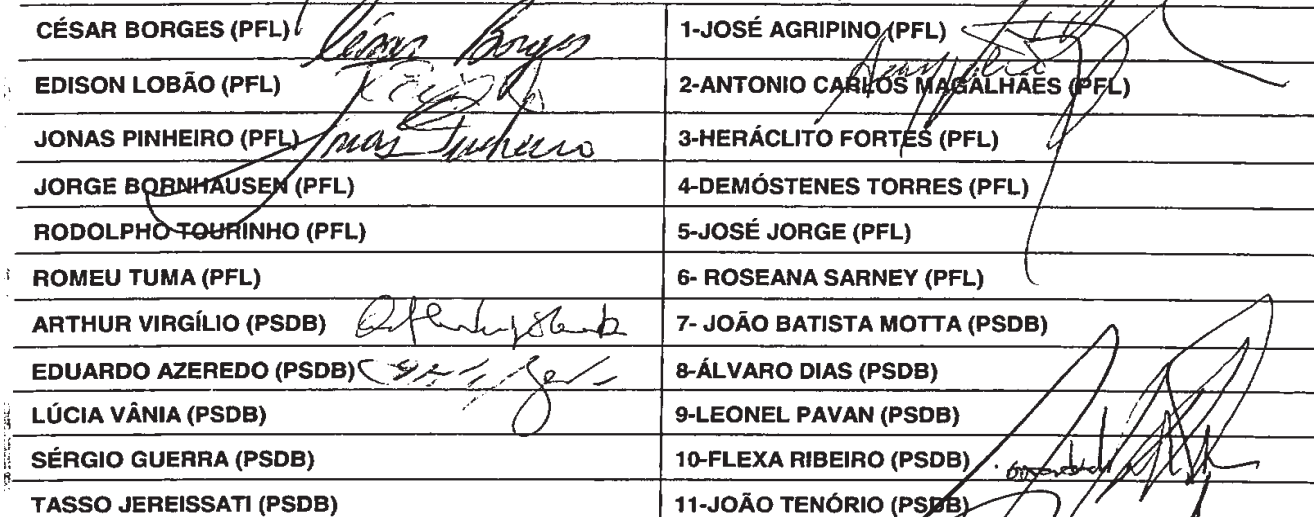 CÉSAR BORGES (PFL) César Borges 1-JOSÉ AGRIPINO (PFL)
EDISON LOBÃO (PFL) 2-ANTONIO CARLOS MAGALHÃES (PFL)
JONAS PINHEIRO (PFL) Jonas Pinheiro 3-HERÁCLITO FORTES (PFL)
JORGE BORNHAUSEN (PFL) 4-DEMÓSTENES TORRES (PFL)
RODOLPHO TOURINHO (PFL) 5-JOSÉ JORGE (PFL)
ROMEU TUMA (PFL) 6- ROSEANA SARNEY (PFL)
ARTHUR VIRGÍLIO (PSDB) 7- JOÃO BATISTA MOTTA (PSDB)
EDUARDO AZEREDO (PSDB) 8-ÁLVARO DIAS (PSDB)
LÚCIA VÂNIA (PSDB) 9-LEONEL PAVAN (PSDB)
SÉRGIO GUERRA (PSDB) 10-FLEXA RIBEIRO (PSDB)
TASSO JEREISSATI (PSDB) 11-JOÃO TENÓRIO (PSDB)